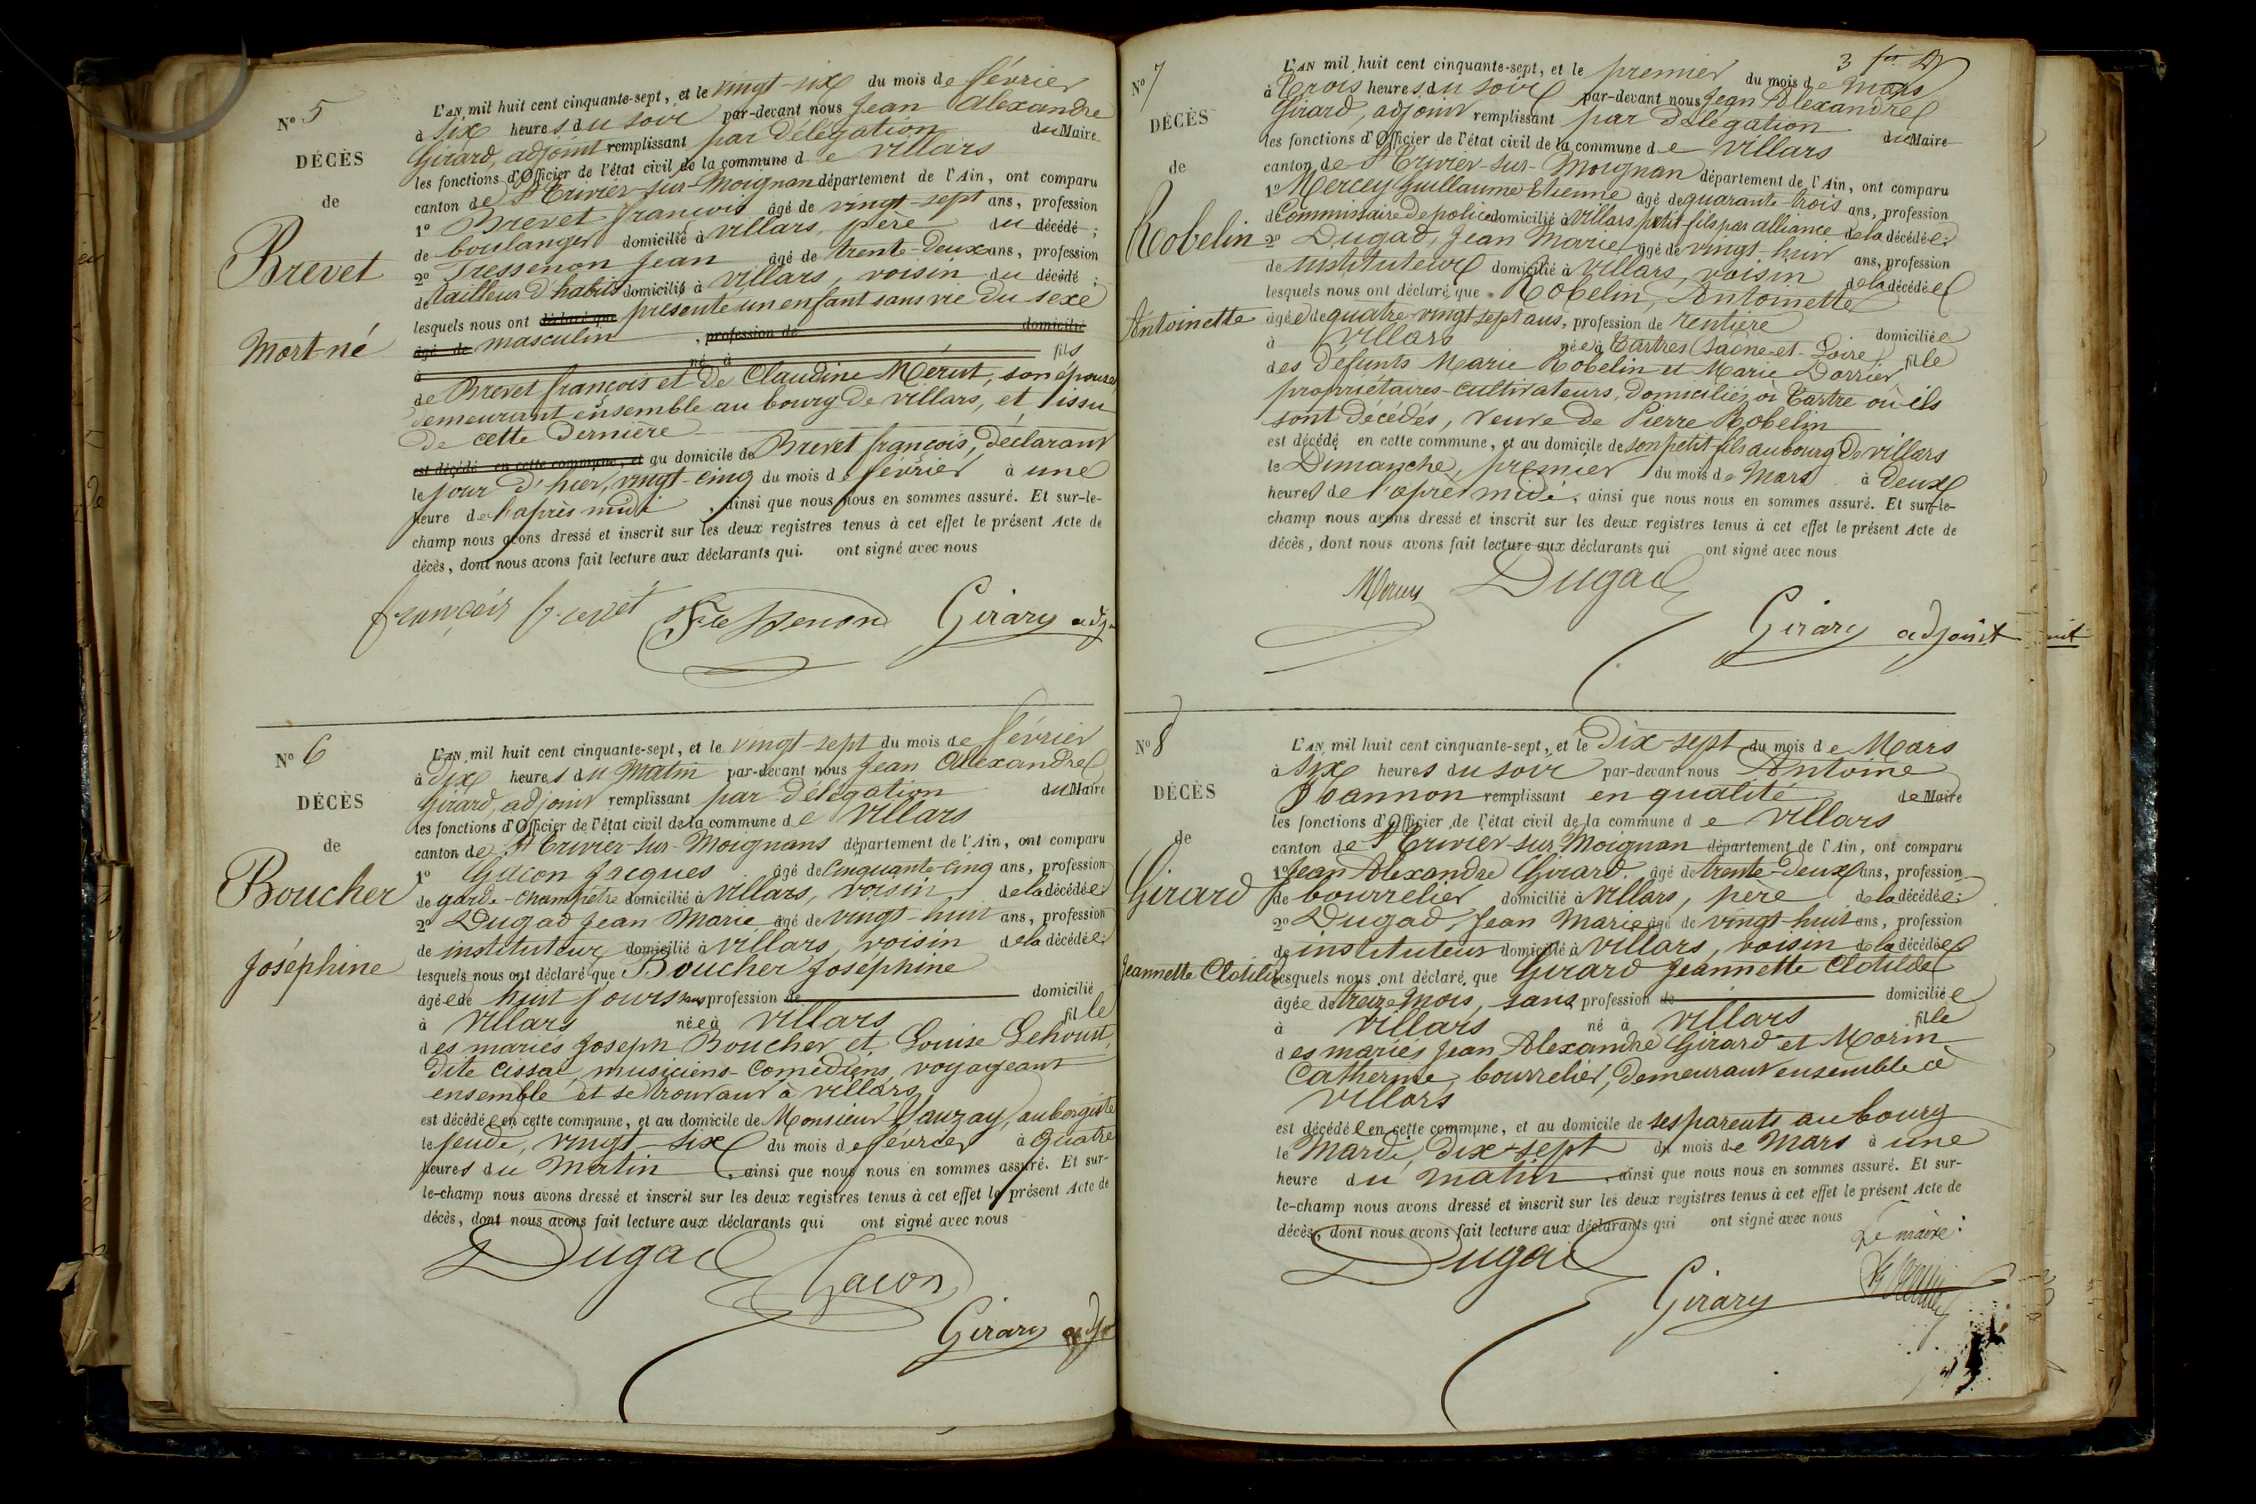 N° 5
DÉCÈS
de
Brevet
Mort-né
L'AN mil huit cent cinquante-sept, et le vingt-six du mois de février
à six heures du soir par-devant nous Jean Alexandre
Girard, adjoint remplissant par délégation du Maire
les fonctions d'Officier de l'état civil de la commune de Villars
canton de St Trivier-sur-Moignan département de l'Ain, ont comparu
1° Brevet françois âgé de vingt-sept ans, profession
de boulanger domicilié à Villars, père du décédé;
2° Tressenon Jean âgé de trente-deux ans, profession
de tailleur d'habits domicilié à Villars, voisin du décédé;
lesquels nous ont déclaré que présenté un enfant sans vie du sexe
âgé de masculin, profession de domicilié
à né à fils
de Brevet françois et de Claudine Mérut, son épouse,
demeurant ensemble au bourg de Villars, et issu
de cette dernière
est décédé en cette commune, et au domicile de Brevet françois, déclarant
le jour d'hier, vingt-cinq du mois de février à une
heure de l'après midi, ainsi que nous nous en sommes assuré. Et sur-le-
champ nous avons dressé et inscrit sur les deux registres tenus à cet effet le présent Acte de
décès, dont nous avons fait lecture aux déclarants qui ont signé avec nous
Girard adj
N° 6
DÉCÈS
de
Boucher
Joséphine
L'AN mil huit cent cinquante-sept, et le vingt-sept du mois de février
à dix heures du matin par-devant nous Jean Alexandre
Girard, adjoint remplissant par délégation du Maire
les fonctions d'Officier de l'état civil de la commune de Villars
canton de St Trivier-sur-Moignans département de l'Ain, ont comparu
1° Gacon Jacques âgé de cinquante-cinq ans, profession
de garde-champêtre domicilié à Villars, voisin de la décédée;
2° Dugad Jean Marie âgé de vingt-huit ans, profession
de instituteur domicilié à Villars, voisin de la décédée;
lesquels nous ont déclaré que Boucher Joséphine
âgée de huit jours sans profession de domicilié
à Villars née à Villars fille
des mariés Joseph Boucher et Louise Lehoust,
dite Cissac, musiciens-Comédiens, voyageant
ensemble et se trouvant à Villars
est décédée en cette commune, et au domicile de Monsieur Vauzay, aubergiste
le jeudi, vingt-six du mois de février à quatre
heures du matin, ainsi que nous nous en sommes assuré. Et sur-
le-champ nous avons dressé et inscrit sur les deux registres tenus à cet effet le présent Acte de
décès, dont nous avons fait lecture aux déclarants qui ont signé avec nous
Dugad
Gacon
Girard adj
3 fer
N° 7
DÉCÈS
de
Robelin
Antoinette
L'AN mil huit cent cinquante-sept, et le premier du mois de Mars
à trois heures du soir par-devant nous Jean Alexandre
Girard, adjoint remplissant par délégation du Maire
les fonctions d'Officier de l'état civil de la commune de Villars
canton de St Trivier-sur-Moignan département de l'Ain, ont comparu
1° Mercey Guillaume Etienne âgé de quarante-trois ans, profession
de Commissaire de police domicilié à Villars petit-fils par alliance de la décédée;
2° Dugad, Jean Marie âgé de vingt-huit ans, profession
de instituteur domicilié à Villars, voisin de la décédée
lesquels nous ont déclaré que Robelin, Antoinette
âgée de quatre-vingt-sept ans, profession de rentière domiciliée
à Villars née à Tartres (Saône-et-Loire) fille
des défunts Marie Robelin et Marie Dorrier
propriétaires-cultivateurs, domiciliés à Tartre où ils
sont décédés, veuve de Pierre Robelin
est décédé en cette commune, et au domicile de son petit fils au bourg de Villars
le Dimanche, premier du mois de Mars à deux
heures de l'après midi, ainsi que nous nous en sommes assuré. Et sur-le-
champ nous avons dressé et inscrit sur les deux registres tenus à cet effet le présent Acte de
décès, dont nous avons fait lecture aux déclarants qui ont signé avec nous
Mercey Dugad
Girard adjoint
N° 8
DÉCÈS
de
Girard
Jeannette Clotilde
L'AN mil huit cent cinquante-sept, et le Dix-sept du mois de Mars
à six heures du soir par-devant nous Antoine
Joannon remplissant en qualité de Maire
les fonctions d'Officier de l'état civil de la commune de Villars
canton de St Trivier-sur-Moignan département de l'Ain, ont comparu
1° Jean Alexandre Girard âgé de trente-deux ans, profession
de bourrelier domicilié à Villars, père de la décédée;
2° Dugad, Jean Marie âgé de vingt-huit ans, profession
de instituteur domicilié à Villars, voisin de la décédée
lesquels nous ont déclaré que Girard Jeannette Clotilde
âgée de treize mois, sans profession de domiciliée
à Villars né à Villars fille
des mariés Jean Alexandre Girard et Morin
Catherine, bourrelier, demeurant ensemble à
Villars
est décédée en cette commune, et au domicile de ses parents au bourg
le Mardi, dix-sept du mois de Mars à une
heure du matin, ainsi que nous nous en sommes assuré. Et sur-
le-champ nous avons dressé et inscrit sur les deux registres tenus à cet effet le présent Acte de
décès, dont nous avons fait lecture aux déclarants qui ont signé avec nous
Le maire:
Dugad
Girard